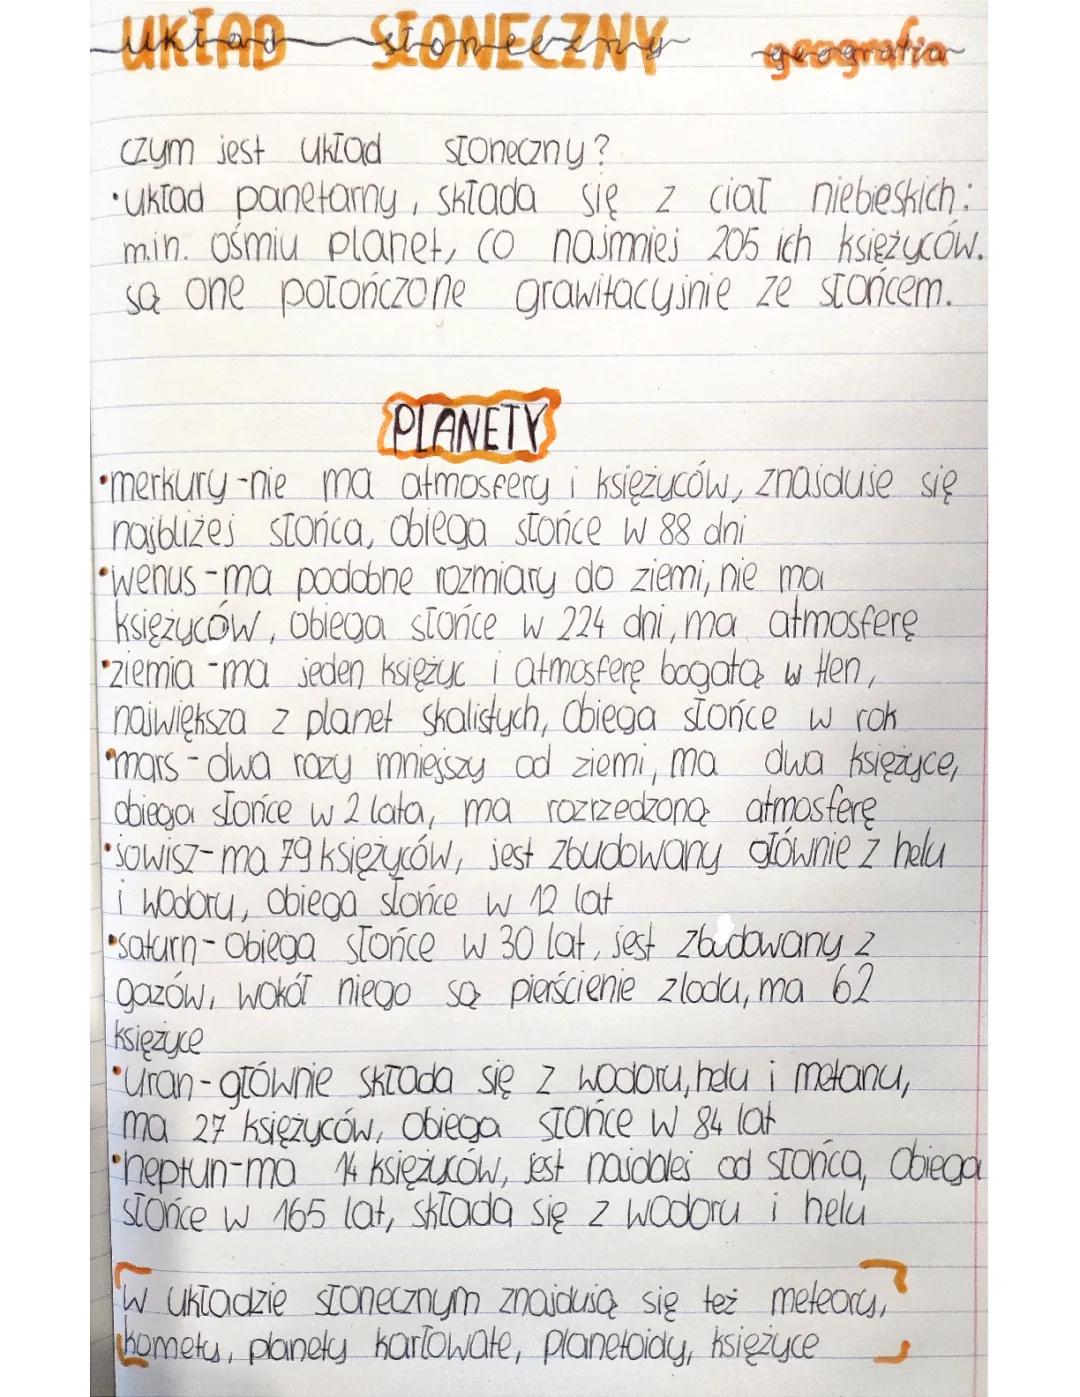 UKŁAD SŁONECZNY geografia
układ słoneczny
czym jest układ słoneczny?
•układ panetarny, składa się z ciał niebieskich:
m.in. ośmiu planet, co najmniej 205 ich księżyców.
są one połończone grawitacyjnie ze słońcem.
PLANETY
•merkury-nie ma atmosfery i księżyców, znajduje się
najbliżej słońca, obiega słońce w 88 dni
•wenus-ma podobne rozmiary do ziemi, nie ma
księżyców, obiega słońce w 224 dni, ma atmosferę
•ziemia-ma jeden księżyc i atmosferę bogatą w tlen,
największa z planet skalistych, obiega słońce w rok
•mars-dwa razy mniejszy od ziemi, ma dwa księżyce,
obiega słońce w 2 lata, ma rozrzedzoną atmosferę
•jowisz-ma 79 księżyców, jest zbudowany głównie z helu
i wodoru, obiega słońce w 12 lat
•saturn-obiega słońce w 30 lat, jest zbudowany z
gazów, wokół niego są pierścienie z lodu, ma 62
księżyce
•uran-głównie składa się z wodoru, helu i metanu,
ma 27 księżyców, obiega słońce w 84 lat
•neptun-ma 14 księżyców, jest najdalej od słońca, obiega
słońce w 165 lat, składa się z wodoru i helu
w układzie słonecznym znajdują się też meteory,
komety, planety karłowate, planetoidy, księżyce